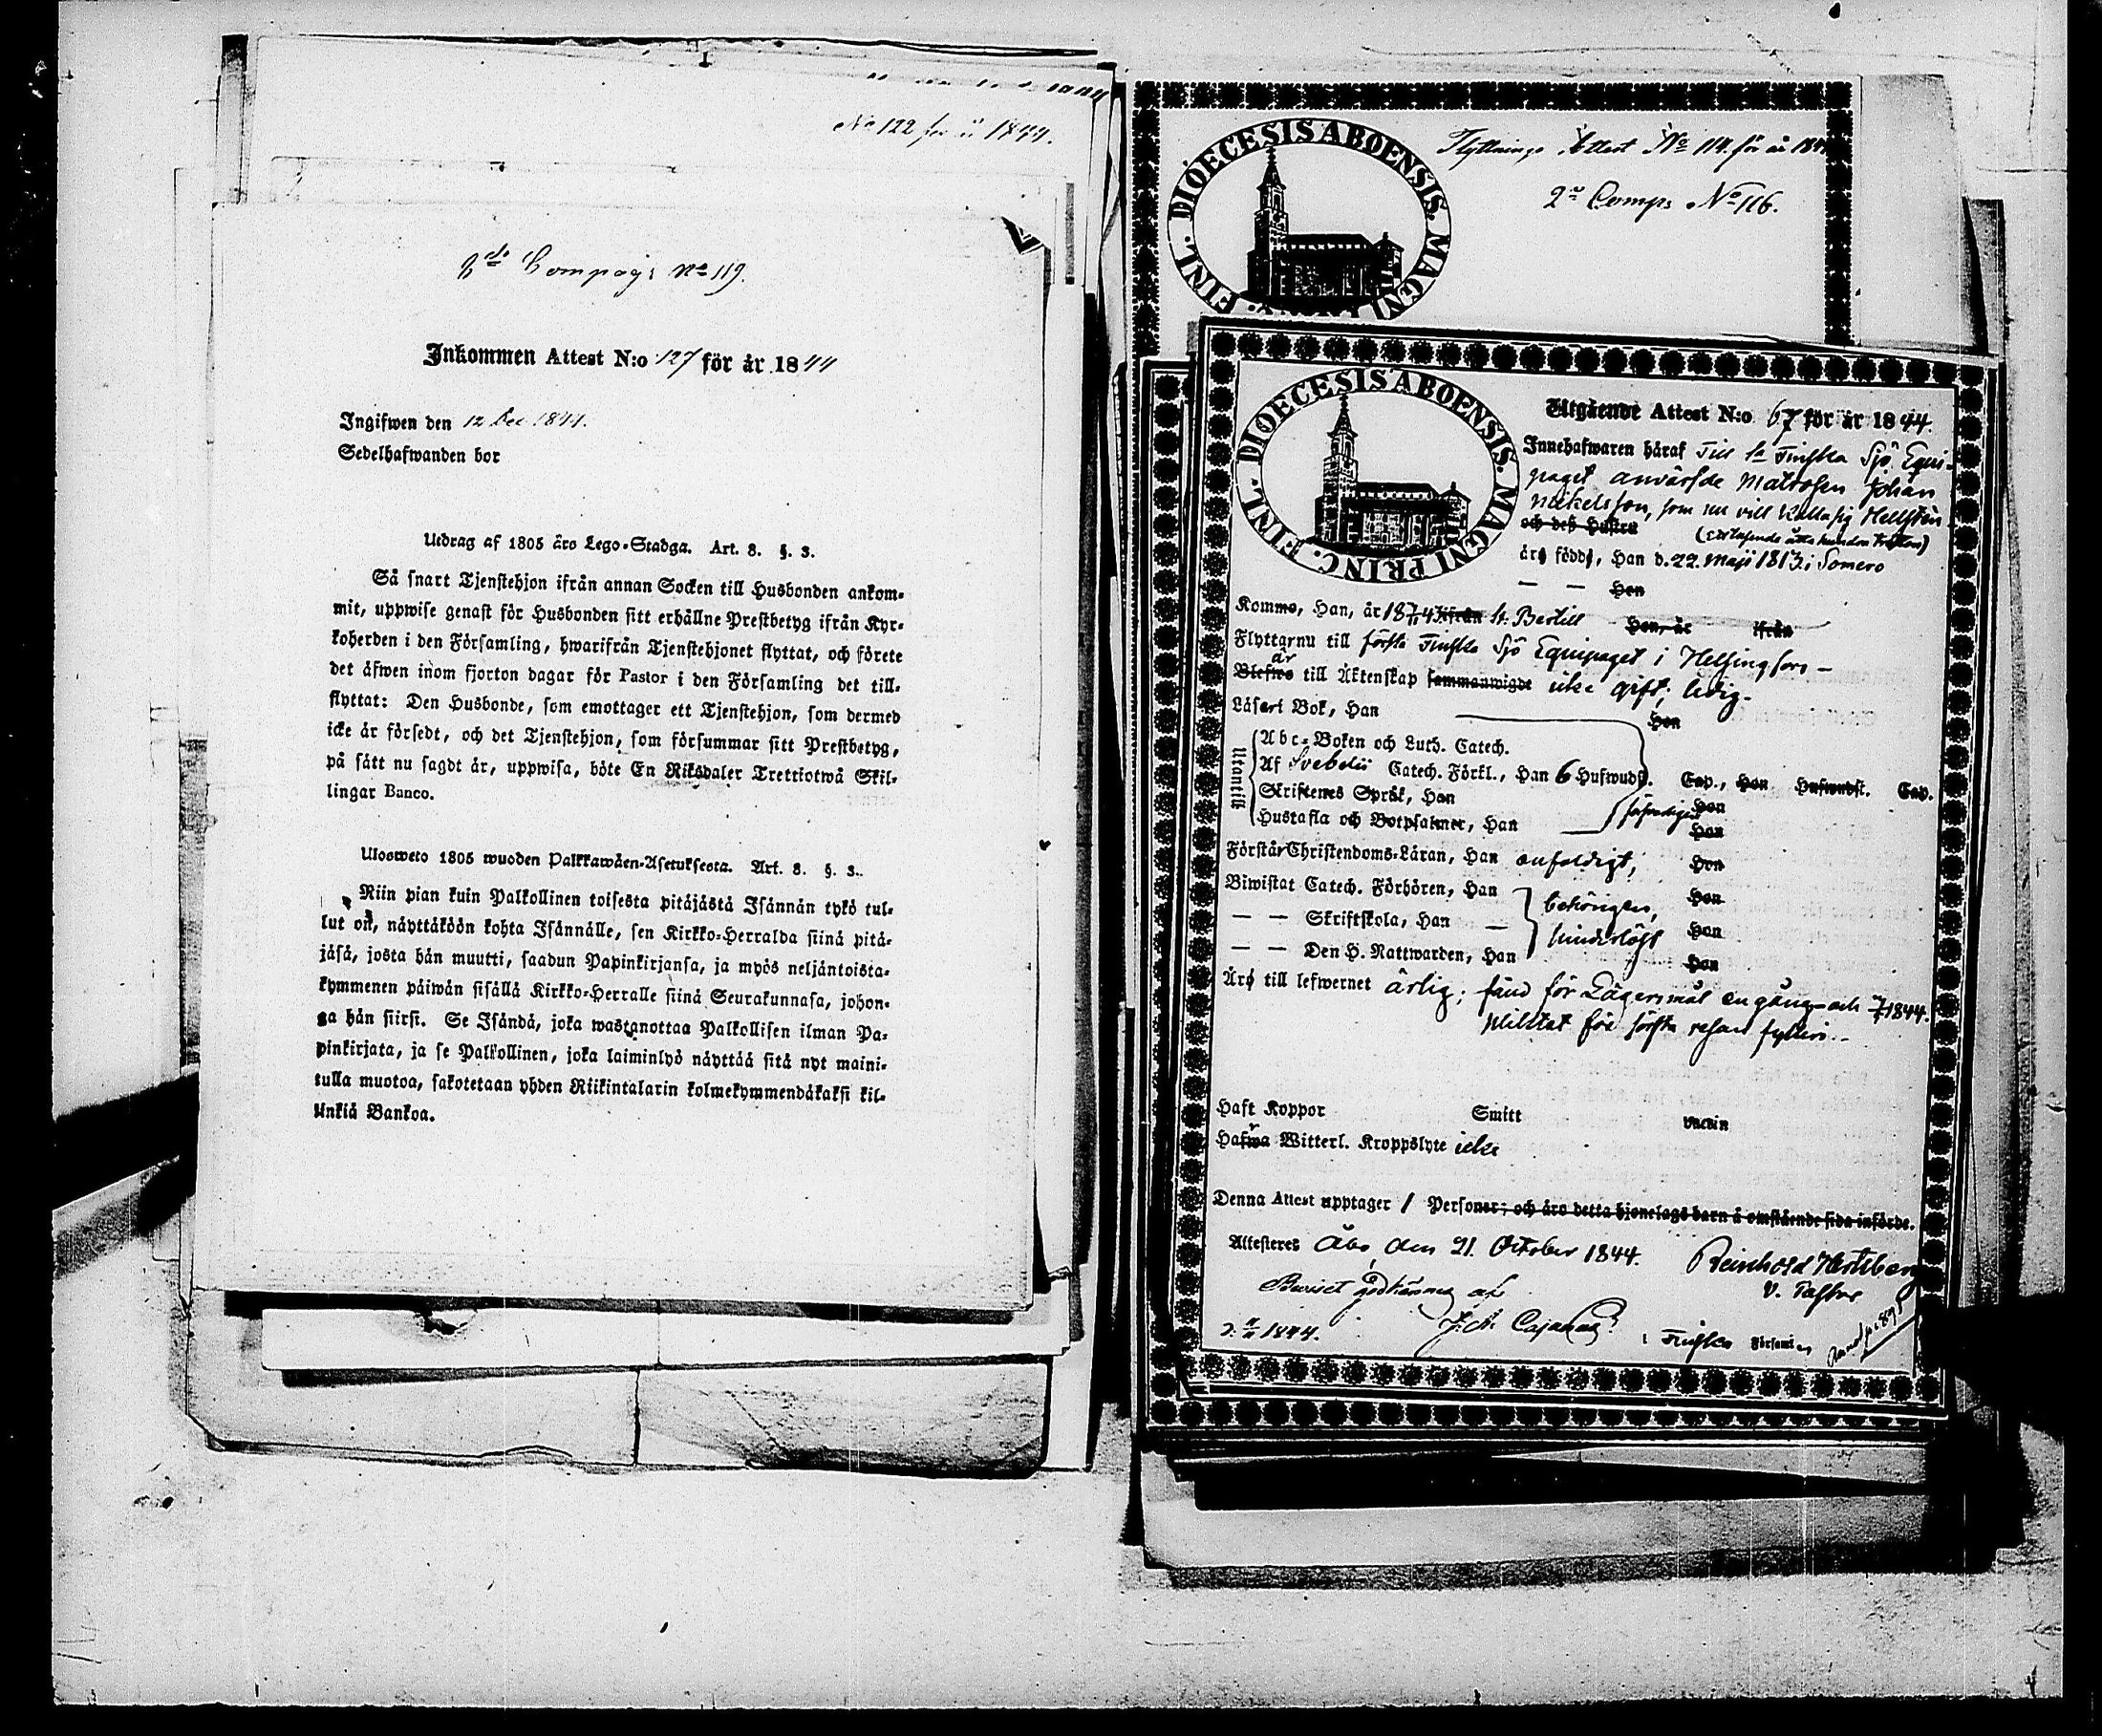 No 122 för år 1844.
2da Compags No 119.
Inkommen Attest N:o 127 för år 1844
Ingifwen den 12 Dec 1844.
Sedelhafwanden bor
Utdrag af 1805 års Lego-Stadga. Art. 8. §. 3.
Så snart Tjenstehjon ifrån annan Socken till Husbonden ankom-
mit, uppwise genast för Husbonden sitt erhållne Prestbetyg ifrån Kyr-
koherden i den Församling, hwarifrån Tjenstehjonet flyttat, och förete
det äfwen inom fjorton dagar för Pastor i den Församling det till-
flyttat: Den Husbonde, som emottager ett Tjenstehjon, som dermed
icke är försedt, och det Tjenstehjon, som försummar sitt Prestbetyg,
på sätt nu sagdt är, uppwisa, böte En Riksdaler Trettiotwå Skil-
lingar Banco.
Ulosweto 1805 wuoden Palkkawäen-Asetuksesta. Art. 8. §. 3.
Niin pian kuin Palkollinen toisesta pitäjästä Isännän tykö tul-
lut on, näyttäköön kohta Isännälle, sen Kirkko-Herralda siinä pitä-
jäsä, josta hän muutti, saadun Papinkirjansa, ja myös neljäntoista-
kymmenen päiwän sisällä Kirkko-Herralle siinä Seurakunnasa, johon-
ga hän siirsi. Se Isändä, joka wastanottaa Palkollisen ilman Pa-
pinkirjata, ja se Palkollinen, joka laiminlyö näyttää sitä nyt maini-
tulla muotoa, sakotetaan yhden Riikintalarin kolmekymmendäkaksi kil-
linkiä Bankoa.
DIOECESIS ABOENSIS. MAGNI PRINC. FINL.
Flyttnings Attest No 114. för år 184
2a Comps No 116.
DIOECESIS ABOENSIS. MAGNI PRINC. FINL.
Utgående Attest N:o 67 för år 1844.
Innehafwaren häraf Till 1a Finska Sjö Equi-
paget anvärfde Matrosen Johan
Mikelsson, som nu vill kalla sig Hellstén
och deß Hustru (Ett tusende åtta hundra tretton)
äro födde, Han d. 22 Maji 1813 i Somero
— — Hon
Komme, Han, år 18 43 ifrån St. Bertils Hon, år ifrån
Flyttar nu till första Finska Sjö Equipaget i Helsingfors –
är
Blefwo till Äktenskap sammanwigde icke gift; ledig.
Läser i Bok, Han Hon
Utantill
Abc-Boken och Luth. Catech.
Af Svebelii Catech. Förkl., Han 6 Hufwudst. Cap., Hon Hufwudst. Cap.
Skriftenes Språk, Han Hon
Hustafla och Botpsalmer, Han Hon
Förstår Christendoms-Läran, Han enfaldigt; Hon
Biwistat Catech. Förhören, Han behörigen, Hon
— — Skriftskola, Han — Hon
— — Den H. Nattwarden, Han hinderlöst Hon
Äro till lefwernet ärlig; sand för Lägersmål en gång och 1844.
pliktat för första resan fylleri. –
Haft Koppor Smitt Vaccin
Hafwa Witterl. Kroppslyte icke
Denna Attest upptager 1 Personer; och äro detta hjonelags barn å omstående sida införde.
Attesteres Åbo, den 21. October 1844. Reinhold Hertzberg
V. Pastor
Beviset godkännes af
J. A. Cajanus
1844. i Finska Församl.